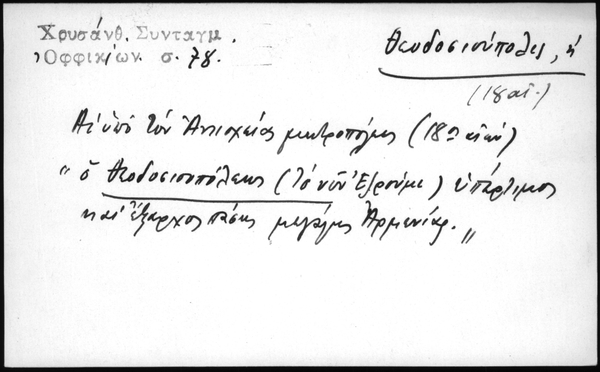 Χρυσάνθ. Συνταγμ.
Ὀφφικίων. σ. 78.
Θεοδοσιούπολις, ἡ
(18 αἰ.)
Αἱ ὑπὸ τὸν Ἀντιοχείας μητροπόλεις (18ος αἰών)
"ὁ Θεοδοσιουπόλεως (τὸ νῦν Ἐζροὺμ) ὑπέρτιμος
καὶ ἔξαρχος πάσης μεγάλης Ἀρμενίας."